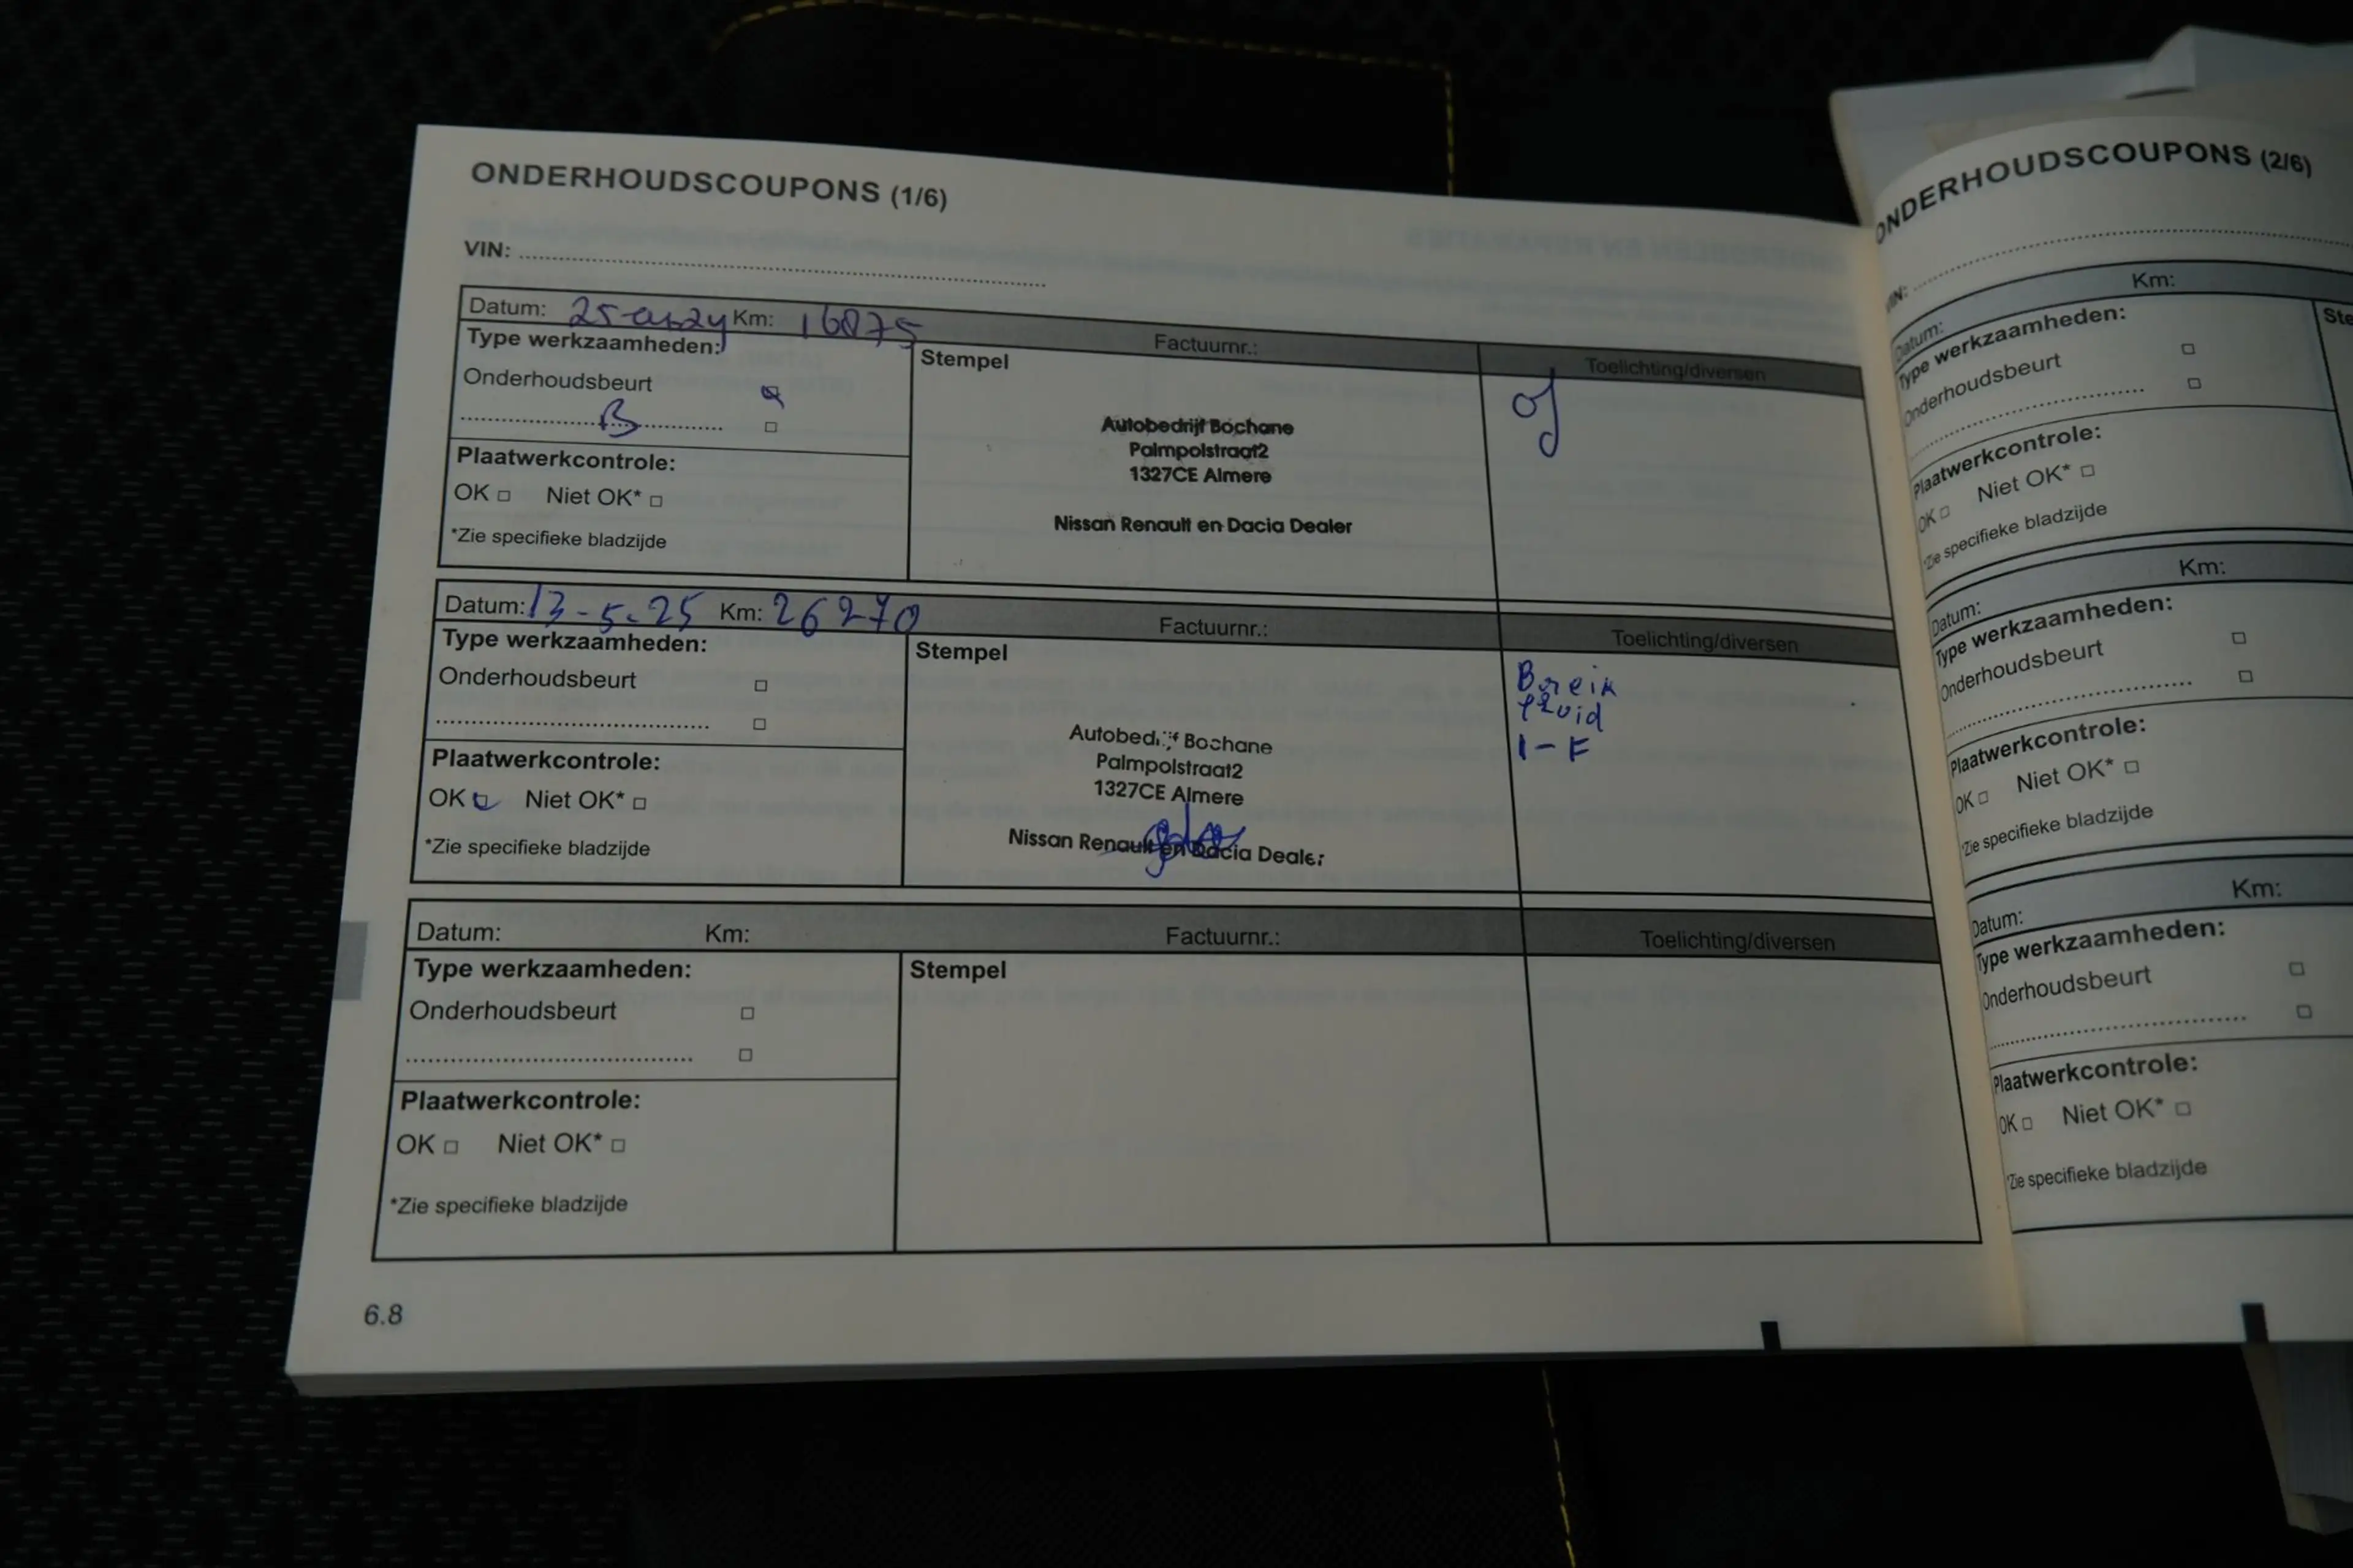 ONDERHOUDSCOUPONS (1/6)
VIN:
Datum: Km: 16875 Factuurnr.: Toelichting/diversen
Type werkzaamheden:
Stempel
Onderhoudsbeurt
B
Plaatwerkcontrole:
OK Niet OK*
*Zie specifieke bladzijde
Autobedrijf Bochane
Palmpolstraat2
1327CE Almere
Nissan Renault en Dacia Dealer
Datum: 13-5-25 Km: 26270 Factuurnr.: Toelichting/diversen
Type werkzaamheden:
Stempel
Onderhoudsbeurt
Plaatwerkcontrole:
OK Niet OK*
*Zie specifieke bladzijde
Autobedrijf Bochane
Palmpolstraat2
1327CE Almere
Nissan Renault en Dacia Dealer
Breik
fluid
1-F
Datum: Km: Factuurnr.: Toelichting/diversen
Type werkzaamheden:
Stempel
Onderhoudsbeurt
Plaatwerkcontrole:
OK Niet OK*
*Zie specifieke bladzijde
6.8
ONDERHOUDSCOUPONS (2/6)
VIN:
Datum: Km:
Type werkzaamheden:
Ste
Onderhoudsbeurt
Plaatwerkcontrole:
OK Niet OK*
*Zie specifieke bladzijde
Datum: Km:
Type werkzaamheden:
Onderhoudsbeurt
Plaatwerkcontrole:
OK Niet OK*
*Zie specifieke bladzijde
Datum: Km:
Type werkzaamheden:
Onderhoudsbeurt
Plaatwerkcontrole:
OK Niet OK*
*Zie specifieke bladzijde